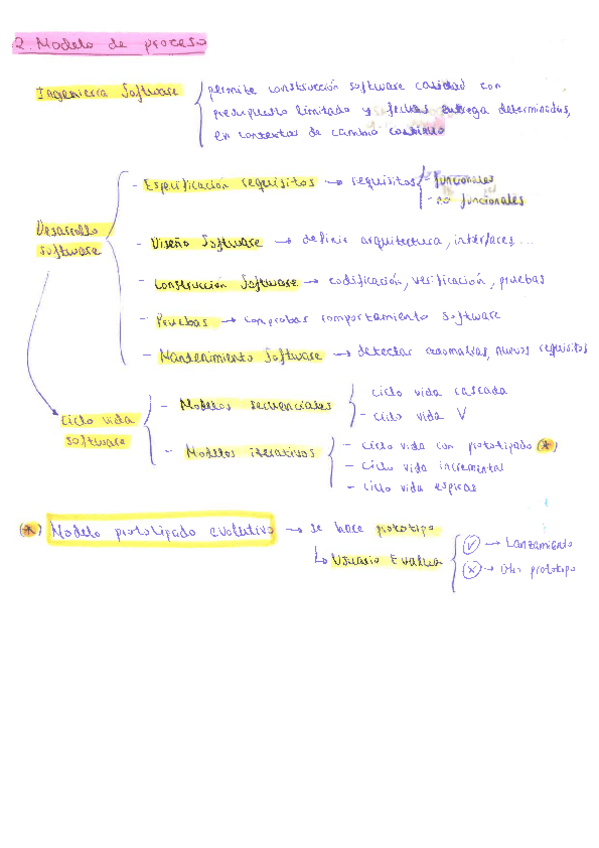 2. Modelo de proceso
Ingenieria Software
permite construcción software calidad con
presupuesto limitado y fechas entrega determinadas,
en contextos de cambio continuo
Desarrollo
software
- Especificación requisitos → requisitos
- funcionales
- no funcionales
- Diseño Software → definir arquitectura, interfaces ...
- Construcción Software → codificación, verificación, pruebas
- Pruebas → comprobar comportamiento software
- Mantenimiento Software → detectar anomalías, nuevos requisitos
Ciclo vida
software
- Modelos secuenciales
ciclo vida cascada
- ciclo vida V
- Modelos iterativos
- Ciclo vida con prototipado (*)
- Ciclo vida incremental
- ciclo vida espiral
(*) Modelo prototipado evolutivo → se hace prototipo
↳ Usuario Evalua
✓ → Lanzamiento
x → prototipo